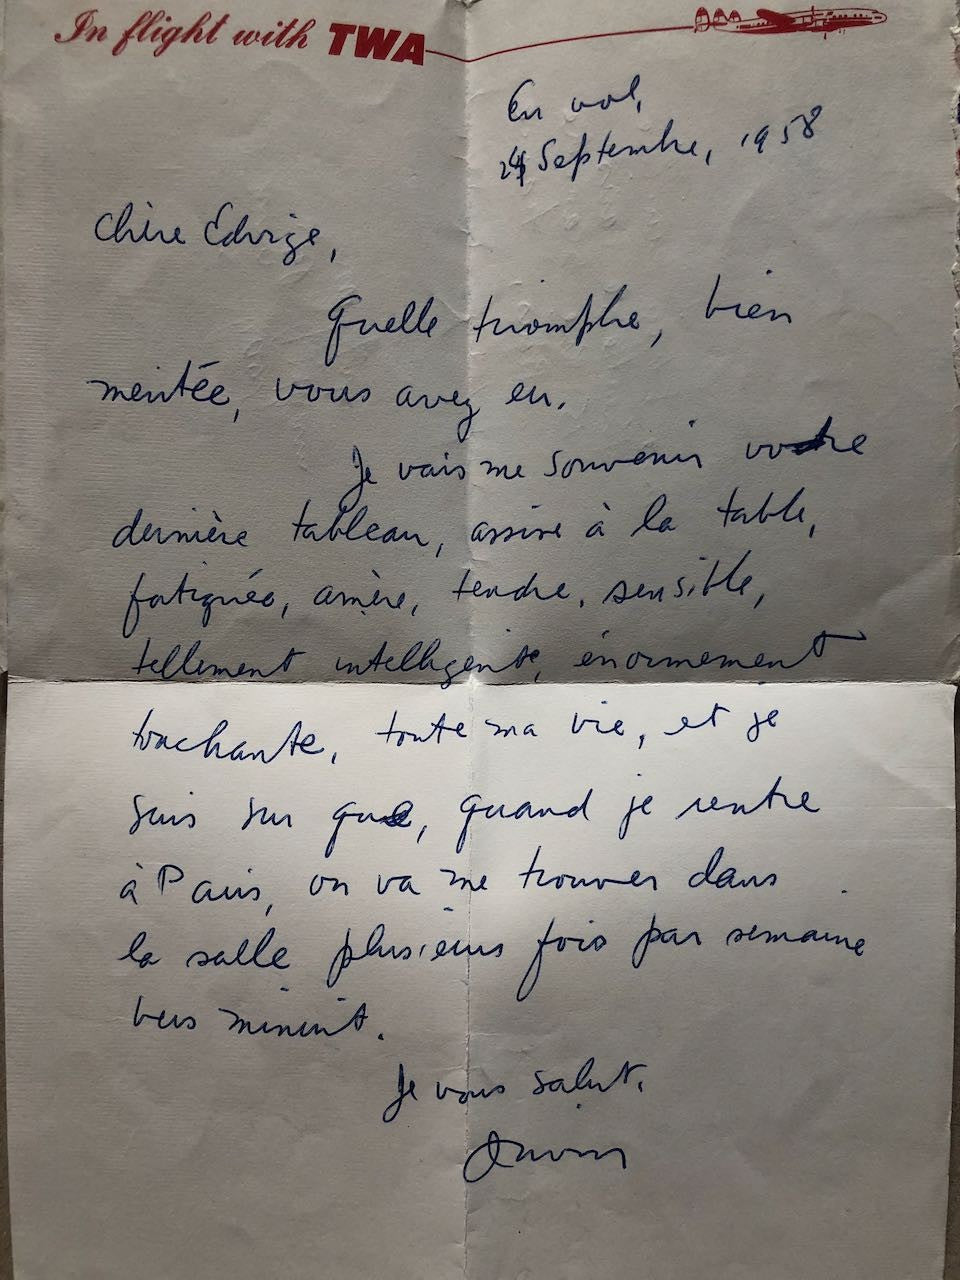 In flight with TWA
En vol,
24 Septembre, 1958
Chère Edvige,
Quelle triomphe, bien
meritée, vous avez eu.
Je vais me souvenir votre
dernière tableau, assise à la table,
fatiguée, amère, tendre, sensible,
tellement intelligente, énormement
touchante, toute ma vie, et je
suis sur que, quand je rentre
à Paris, on va me trouver dans
la salle plusieurs fois par semaine
vers minuit.
Je vous salut.